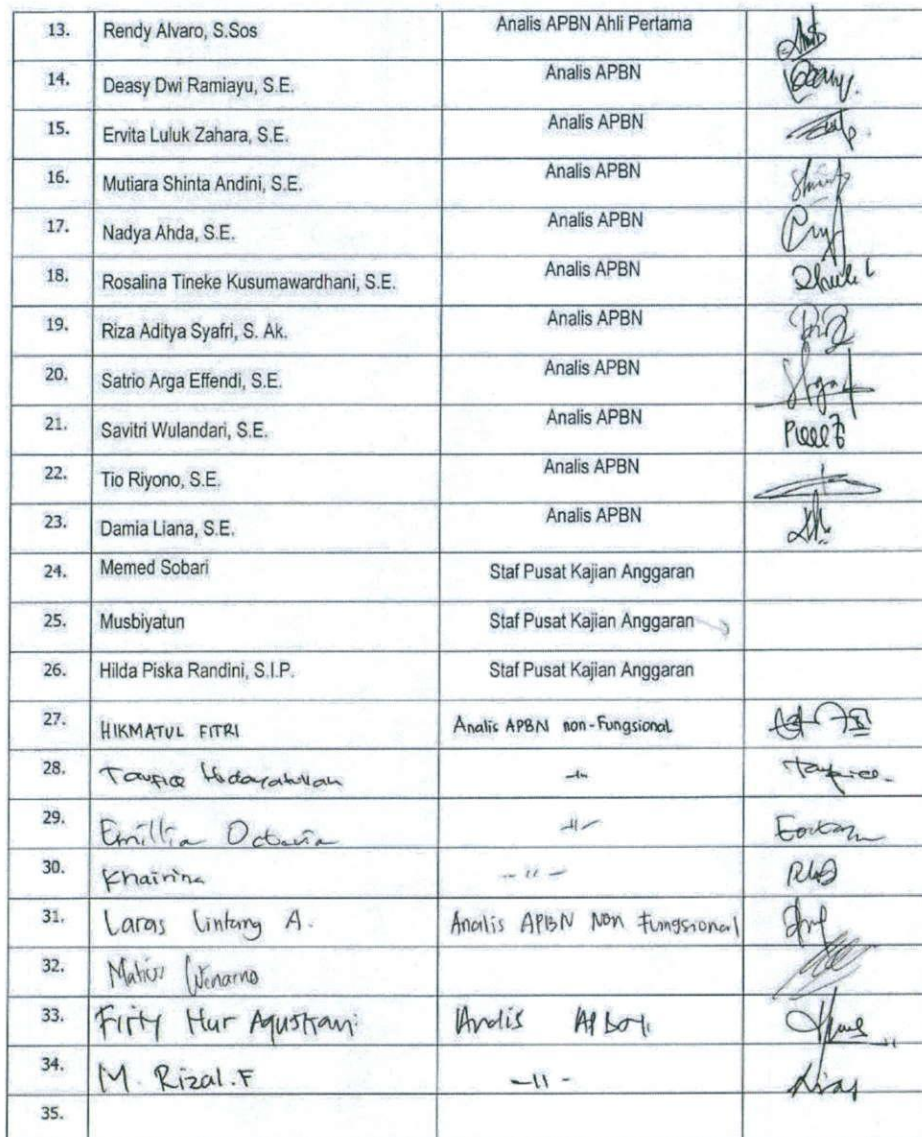 13. Rendy Alvaro, S.Sos Analis APBN Ahli Pertama
14. Deasy Dwi Ramiayu, S.E. Analis APBN
15. Ervita Luluk Zahara, S.E. Analis APBN
16. Mutiara Shinta Andini, S.E. Analis APBN
17. Nadya Ahda, S.E. Analis APBN
18. Rosalina Tineke Kusumawardhani, S.E. Analis APBN
19. Riza Aditya Syafri, S. Ak. Analis APBN
20. Satrio Arga Effendi, S.E. Analis APBN
21. Savitri Wulandari, S.E. Analis APBN
22. Tio Riyono, S.E. Analis APBN
23. Damia Liana, S.E. Analis APBN
24. Memed Sobari Staf Pusat Kajian Anggaran
25. Musbiyatun Staf Pusat Kajian Anggaran
26. Hilda Piska Randini, S.I.P. Staf Pusat Kajian Anggaran
27. HIKMATUL FITRI Analis APBN non-Fungsional
28. Taufiq Hidayatullah -"-
29. Emillia Octavia -"-
30. Khairina -"-
31. Laras Lintang A. Analis APBN Non Fungsional
32. Winarno
33. Nur Agustian
34. M. Rizal.F -"-
35.